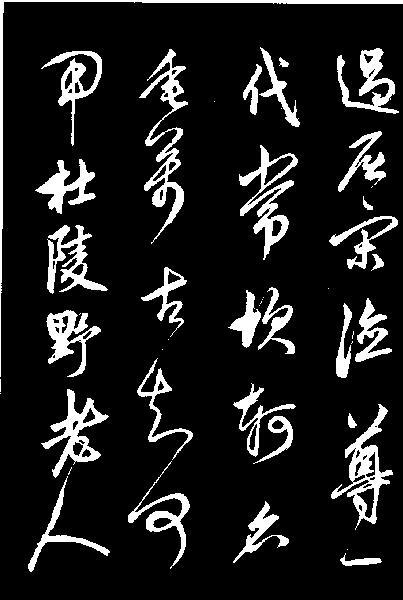 過屈宋德尊一
代常坎軻名
垂萬古知何
用杜陵野老人